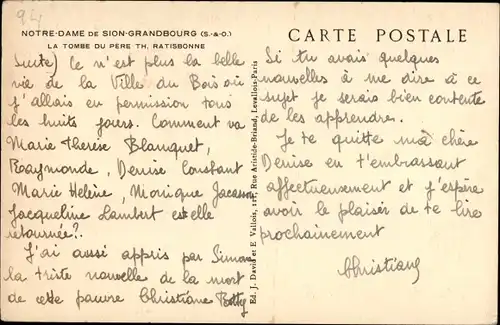 94
NOTRE-DAME DE SION-GRANDBOURG (S.-&-O.)
LA TOMBE DU PÈRE TH. RATISBONNE
suite) Ce n'est plus la belle
vie de la Ville du Bois où
j'allais en permission tous
les huits jours. Comment va
Marie Thérèse Blanquet,
Raymonde, Denise Constant
Marie Hélène, Monique Jacasson
Jacqueline Lambert est elle
retournée?.
J'ai aussi appris par Simone
la triste nouvelle de la mort
de cette pauvre Christiane Botty
Ed. J. David et E. Vallois, 111, Rue Aristide-Briand, Levallois-Paris
CARTE POSTALE
Si tu avais quelques
nouvelles à me dire à ce
sujet je serais bien contente
de les apprendre.
Je te quitte ma chère
Denise en t'embrassant
affectueusement et j'espère
avoir le plaisir de te lire
prochainement
Christiane